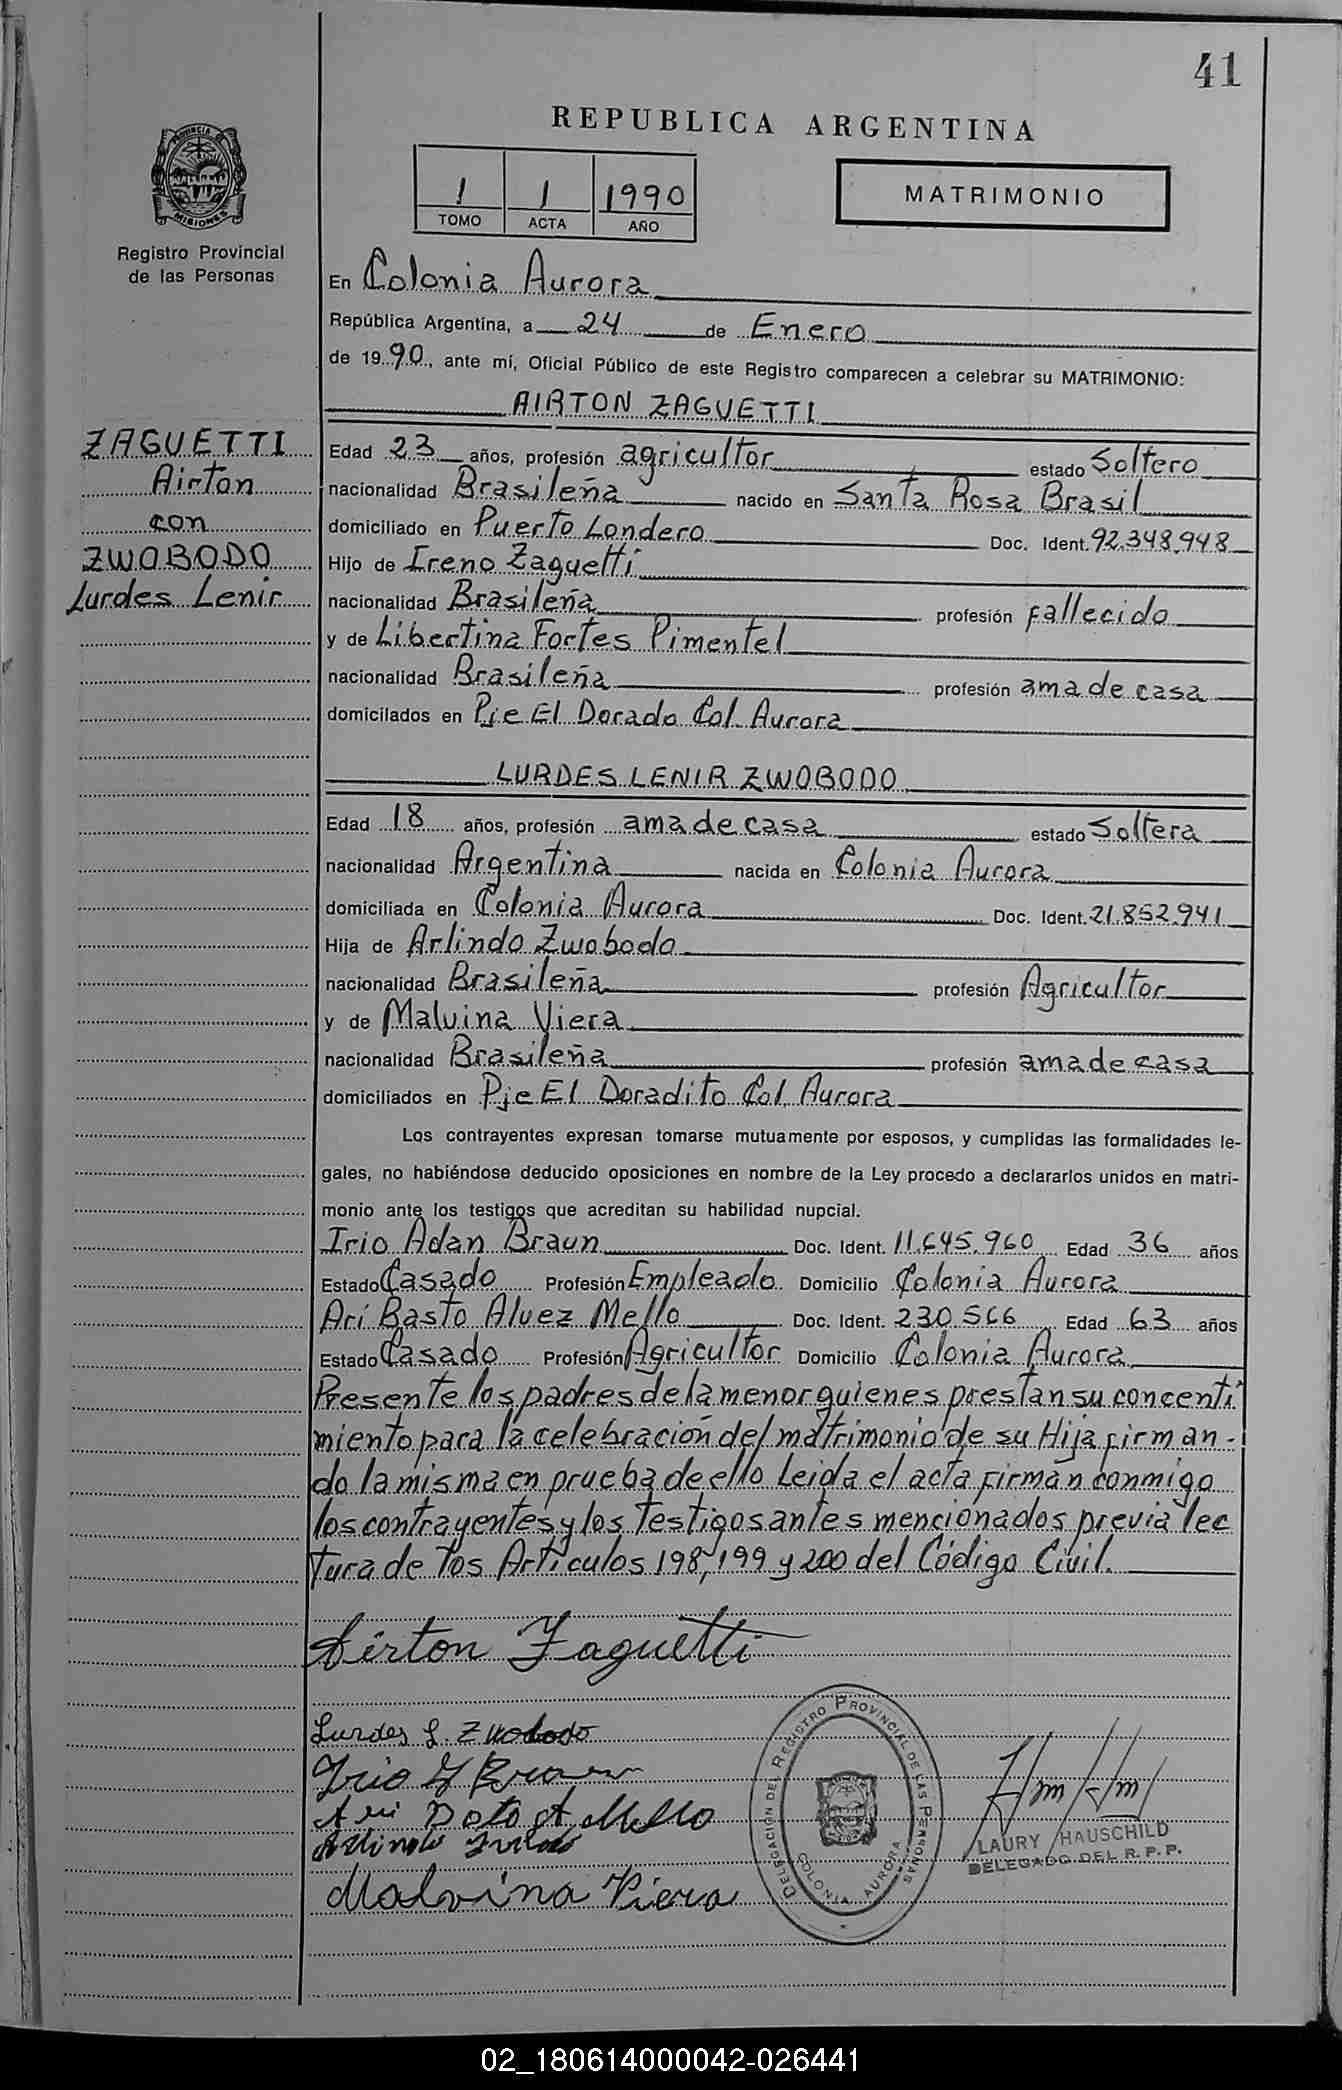 41
REPUBLICA ARGENTINA
PROVINCIA DE
MISIONES
1 1 1990
TOMO ACTA AÑO
MATRIMONIO
Registro Provincial
de las Personas
En Colonia Aurora
República Argentina, a 24 de Enero
de 1990, ante mí, Oficial Público de este Registro comparecen a celebrar su MATRIMONIO:
AIRTON ZAGUETTI
ZAGUETTI
Airton
con
ZWOBODO
Lurdes Lenir
Edad 23 años, profesión agricultor estado Soltero
nacionalidad Brasileña nacido en Santa Rosa Brasil
domiciliado en Puerto Londero Doc. Ident. 92.348.948
Hijo de Ireno Zaguetti
nacionalidad Brasileña profesión fallecido
y de Libertina Fortes Pimentel
nacionalidad Brasileña profesión ama de casa
domicilados en Pje El Dorado Col. Aurora
LURDES LENIR ZWOBODO
Edad 18 años, profesión ama de casa estado Soltera
nacionalidad Argentina nacida en Colonia Aurora
domiciliada en Colonia Aurora Doc. Ident. 21.852.941
Hija de Arlindo Zwobodo
nacionalidad Brasileña profesión Agricultor
y de Malvina Viera
nacionalidad Brasileña profesión ama de casa
domiciliados en Pje El Doradito Col. Aurora
Los contrayentes expresan tomarse mutuamente por esposos, y cumplidas las formalidades le-
gales, no habiéndose deducido oposiciones en nombre de la Ley procedo a declararlos unidos en matri-
monio ante los testigos que acreditan su habilidad nupcial.
Irio Adan Braun Doc. Ident. 11.645.960 Edad 36 años
Estado Casado Profesión Empleado Domicilio Colonia Aurora
Ari Basto Alvez Mello Doc. Ident. 230.566 Edad 63 años
Estado Casado Profesión Agricultor Domicilio Colonia Aurora
Presente los padres de la menor quienes prestan su concenti
miento para la celebración del matrimonio de su Hija firman-
do la misma en prueba de ello Leida el acta firman conmigo
los contrayentes y los testigos antes mencionados previa lec
tura de los Artículos 198, 199 y 200 del Código Civil.
Airton Zaguetti
Lurdes L. Zwobodo
Irio A Braun
Ari Bato A. Mello
Malvina Viera
DELEGACION DEL REGISTRO PROVINCIAL DE LAS PERSONAS
COLONIA AURORA
LAURY HAUSCHILD
DELEGADO DEL R.P.P.
02_180614000042-026441